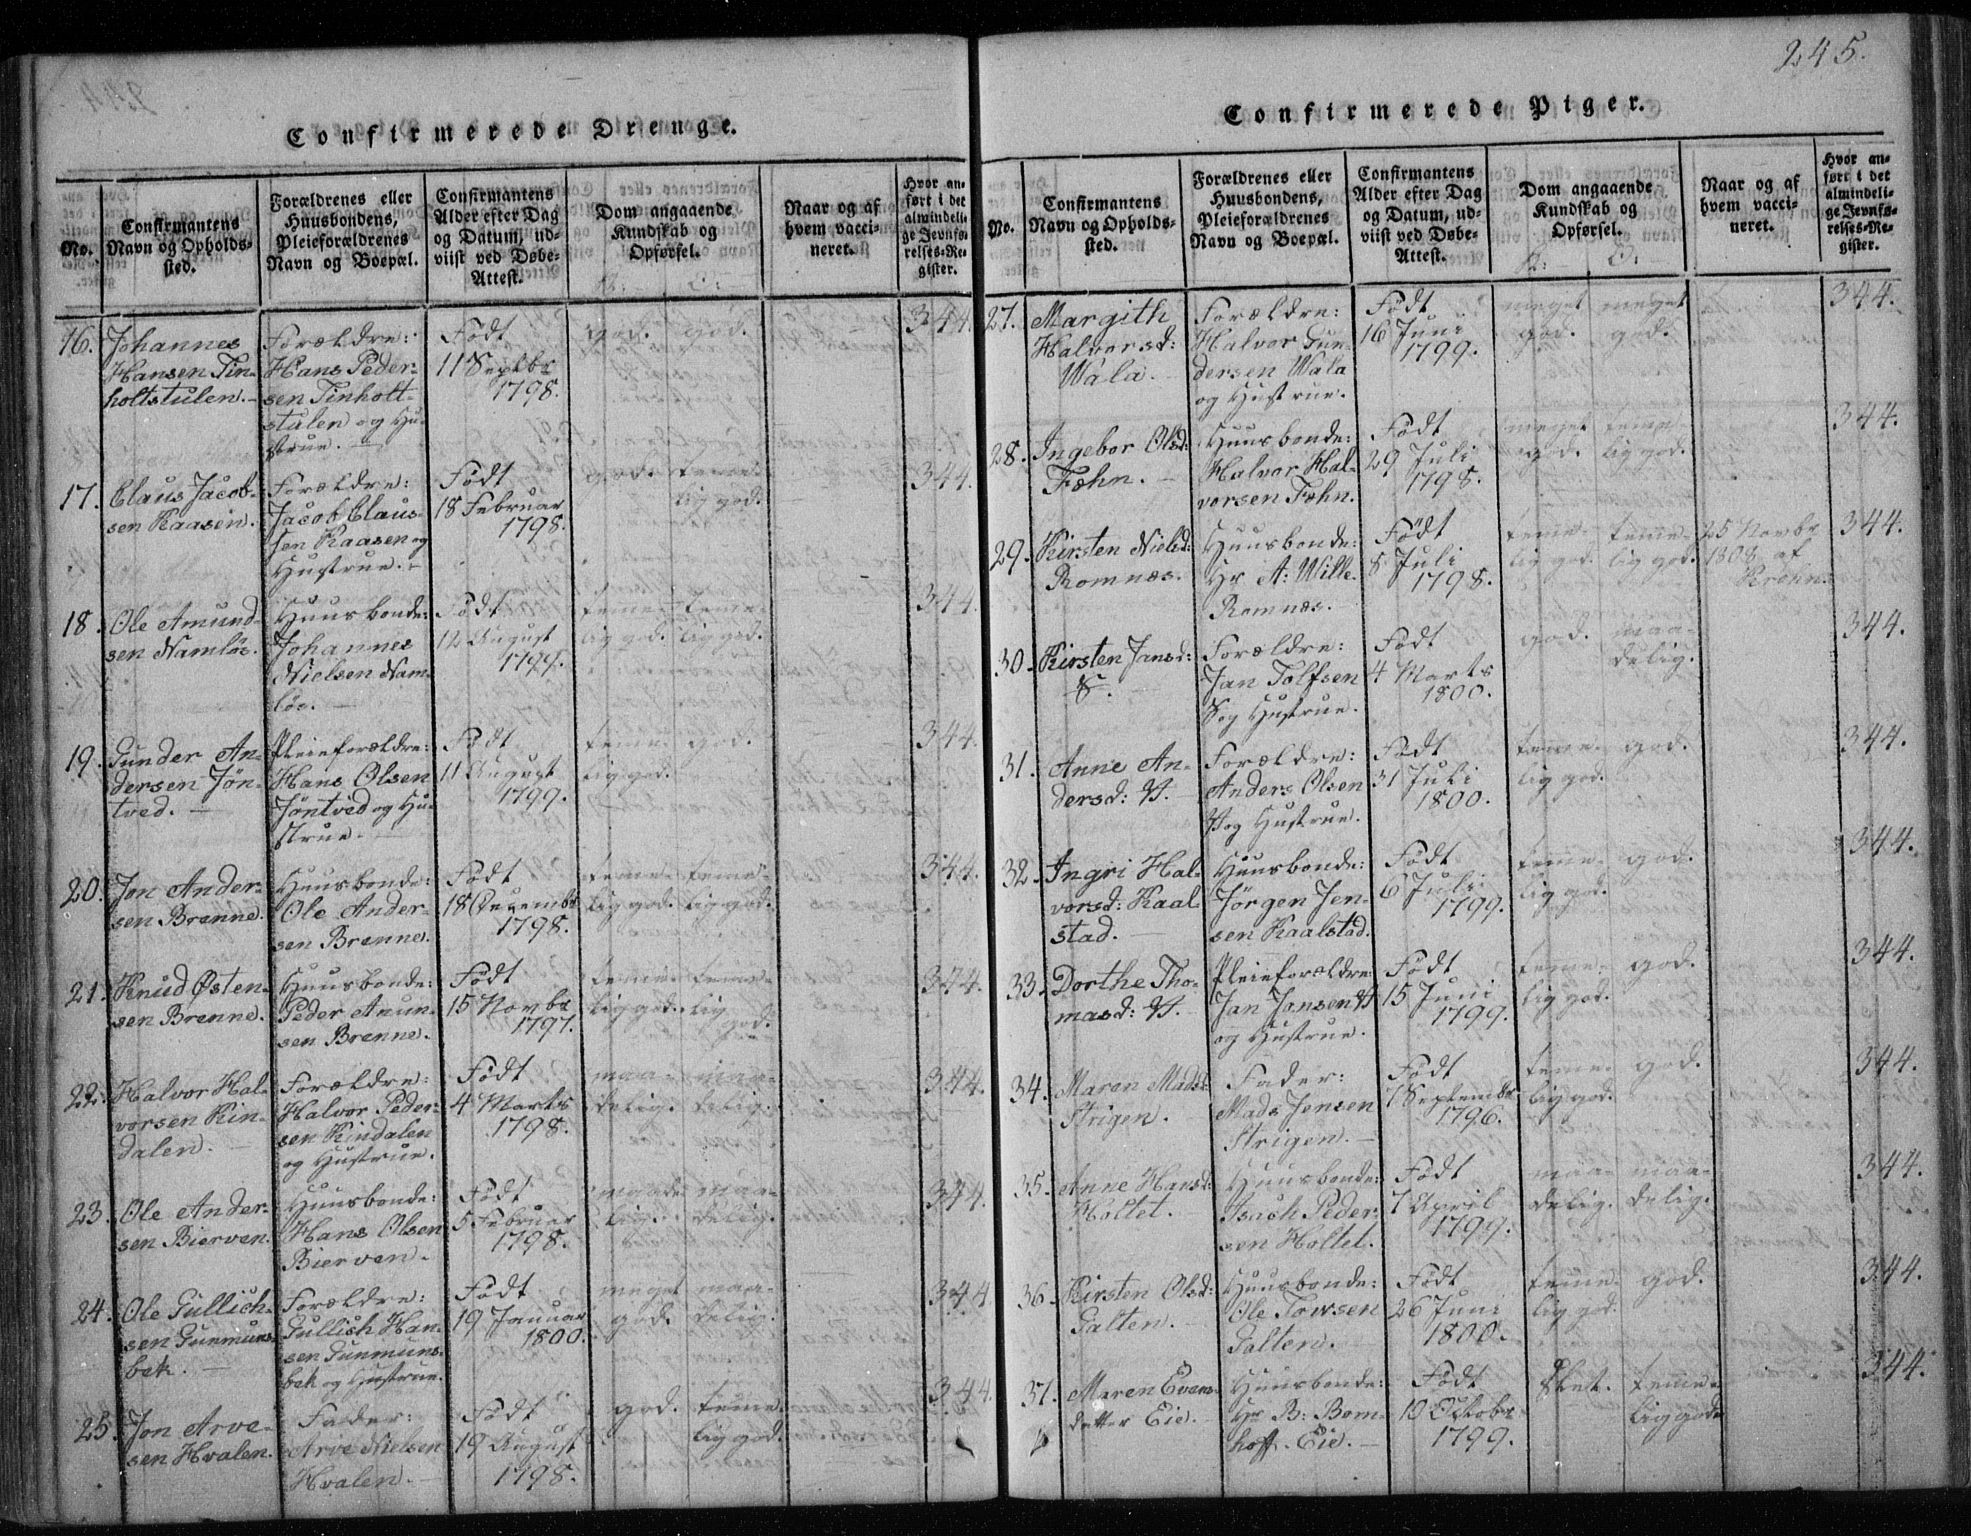 245.
Confirmerede Drenge.
No.
Confirmantens
Navn og Opholds-
sted.
Forældrenes eller
Huusbondens,
Pleieforældrenes
Navn og Boepæl.
Confirmantens
Alder efter Dag
og Datum, ud-
viist ved Døbe-
Attest.
Dom angaaende
Kundskab og
Opførsel.
K: O:
Naar og af
hvem vacci-
neret.
Hvor an-
ført i det
almindeli-
ge Jevnfø-
relses-Re-
gister.
16. Johannes
Hansen Tin-
holtstulen.
Forældre:
Hans Peder-
sen Tinholt-
stulen og Hu-
strue.
Født
11 Septbr
1798.
god. god.
344.
17. Claus Jacob-
sen Kaasen.
Forældre:
Jacob Claus-
sen Kaasen og
Hustrue.
Født
18 Februar
1798.
god. teme-
lig god.
344.
18. Ole Amund-
sen Namløs.
Huusbonde:
Johannes
Nielsen Nam-
løs.
Født
12 August
1799.
teme- teme-
lig god. lig god.
344.
19. Gunder An-
dersen Jøn-
tved.
Pleieforældre:
Hans Olsen
Jøntved og Hu-
strue.
Født
11 August
1799.
teme- god.
lig god.
344.
20. Jon Ander-
sen Brenne.
Huusbonde:
Ole Ander-
sen Brenne.
Født
18 Decembr
1798.
teme- teme-
lig god. lig god.
344.
21. Knud Østen-
sen Brenne.
Huusbonde:
Peder Anun-
sen Brenne.
Født
15 Novbr
1797.
teme- teme-
lig god. lig
god.
344.
22. Halvor Hal-
vorsen Kin-
dalen.
Forældre:
Halvor Peder-
sen Kindalen
og Hustrue.
Født
4 Marts
1798.
maa- maa-
delig. delig.
344.
23. Ole Ander-
sen Bierven.
Huusbonde:
Hans Olsen
Bierven.
Født
5 Februar
1798.
maade- maa-
lig. delig.
344.
24. Ole Gullich-
sen Gunmuns-
bek.
Forældre:
Gullich Han-
sen Gunmuns-
bek og Hustrue.
Født
19 Januar
1800.
meget maa-
god. delig.
344
25. Jon Arve-
sen Hvalen.
Fader:
Arve Nielsen
Hvalen.
Født
19 August
1798.
god. teme-
lig god.
344.
Confirmerede Piger.
No.
Confirmantens
Navn og Opholds-
sted.
Forældrenes eller
Huusbondens,
Pleieforældrenes
Navn og Boepæl.
Confirmantens
Alder efter Dag
og Datum, ud-
viist ved Døbe-
Attest.
Dom angaaende
Kundskab og
Opførsel.
K: O:
Naar og af
hvem vacci-
neret.
Hvor an-
ført i det
almindeli-
ge Jevnfø-
relses-Re-
gister.
27. Margith
Halvorsd:
Wala.
Forældre:
Halvor Gun-
dersen Wala
og Hustrue.
Født
16 Juni
1799.
meget meget
god. god.
344.
28. Ingebor Olsd:
Fæhn.
Huusbonde:
Halvor Hal-
vorsen Fæhn.
Født
29 Juli
1798.
meget teme-
god. lig god.
344.
29. Kirsten Nielsd:
Romnæs.
Huusbonde:
Hr A: Wille.
Romnæs.
Født
8 Juli
1798.
teme- teme-
lig god. lig god.
25 Novbr
1808 af
Krohn.
344.
30. Kirsten Jansd:
Forældre:
Jan Tolfsen
og Hustrue.
Født
4 Marts
1800.
god. maa-
delig.
344.
31. Anne An-
dersd:
Forældre:
Anders Olsen
og Hustrue.
Født
31 Juli
1800.
teme- god.
lig god.
344.
32. Ingri Hal-
vorsd: Kaal-
stad.
Huusbonde:
Jørgen Jen-
sen Kaalstad.
Født
6 Juli
1799.
teme- god.
lig god.
344.
33. Dorthe Tho-
masd:
Pleieforældre:
Jan Jansen
og Hustrue.
Født
15 Juni
1799.
teme- god.
lig god.
344.
34. Maren Madsd:
Strigen.
Fader:
Mads Jensen
Strigen.
Født
7 Septembr
1796.
teme- god.
lig god.
344.
35. Anne Hansd:
Holtet.
Huusbonde:
Isach Peder-
sen Holtet.
Født
7 April
1799.
maa- maa-
delig. delig.
344.
36. Kirsten Olsd:
Galten.
Huusbonde:
Ole Towsen
Galten.
Født
26 Juni
1800.
teme- god.
lig god.
344.
37. Maren Evens-
datter Eie.
Huusbonde:
Hr B: Bom-
hoff. Eie.
Født
10 Octobr
1799.
slet. teme-
lig god.
344.